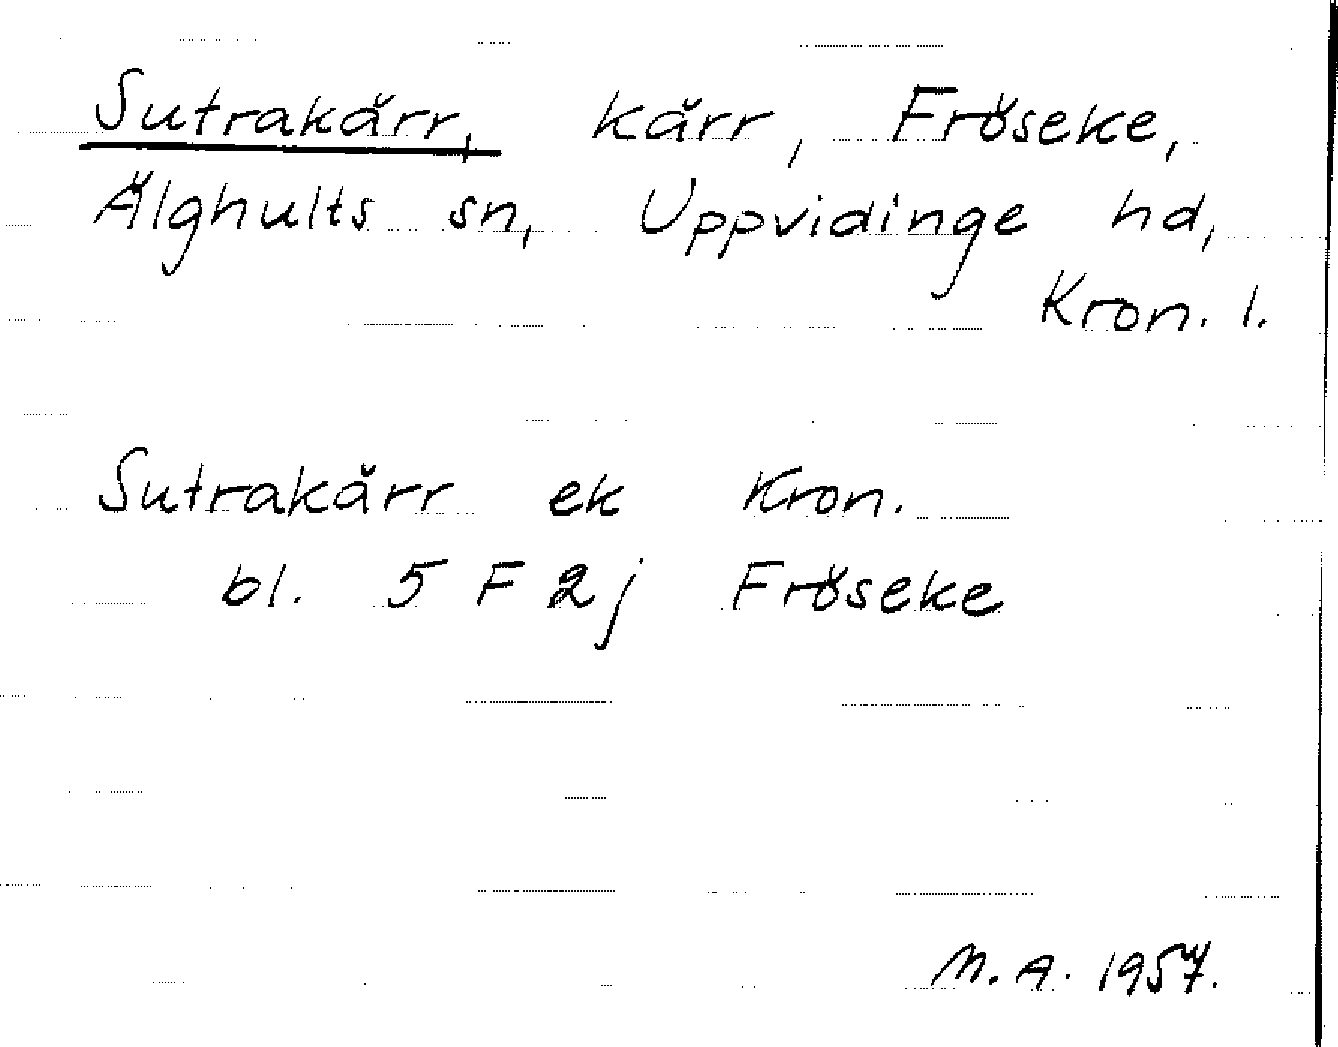 Sutrakärr, kärr, Fröseke,
Älghults sn, Uppvidinge hd,
Kron. l.
Sutrakärr ek Kron.
bl. 5 F 2j Fröseke
M. A. 1957.